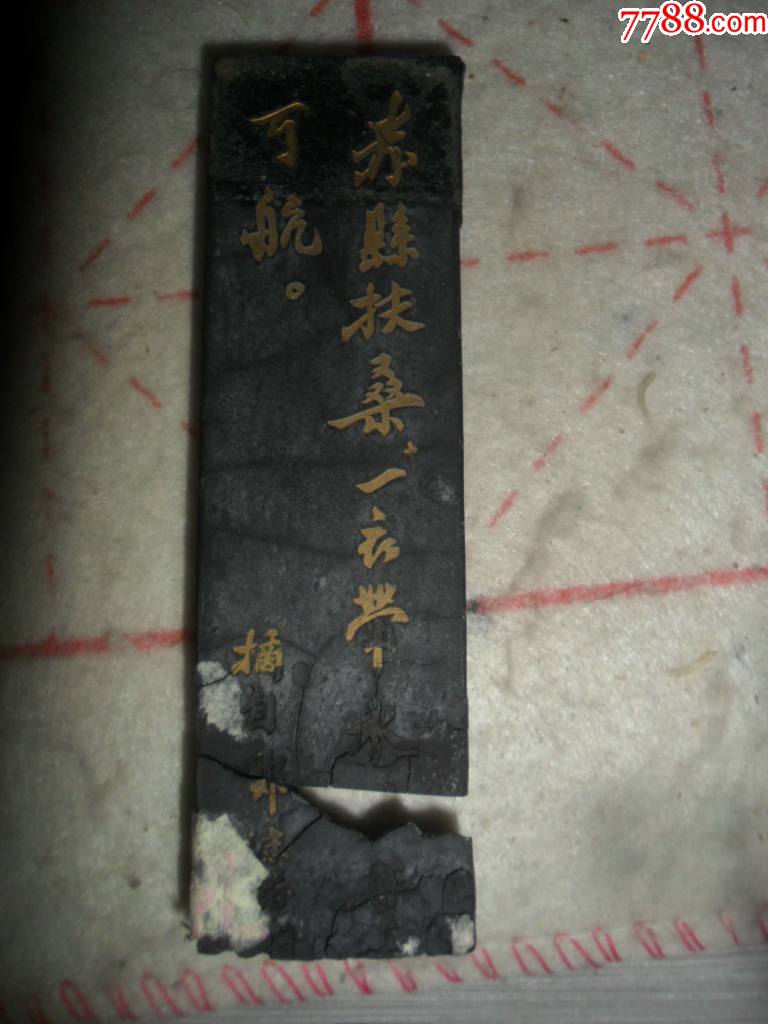 7788.com
赤縣扶桑、一衣帶水
可航。
摘自郭沫